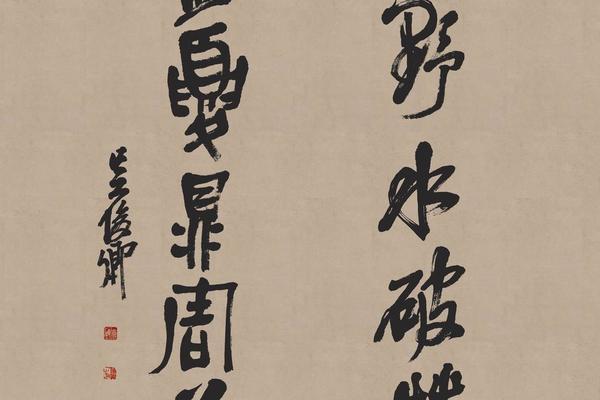 野水破
夏鼎周
吳俊卿